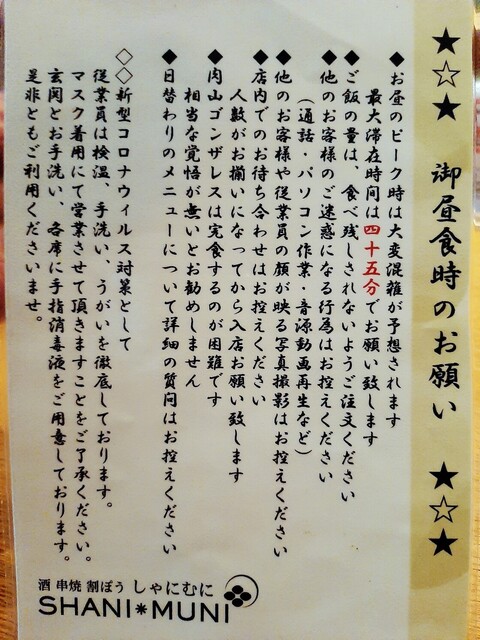 ★☆★ 御昼食時のお願い ★☆★
◆お昼のピーク時は大変混雑が予想されます
最大滞在時間は四十五分でお願い致します
◆ご飯の量は、食べ残しされないようご注文ください
◆他のお客様のご迷惑になる行為はお控えください
（通話・パソコン作業・音源動画再生など）
◆他のお客様や従業員の顔が映る写真撮影はお控えください
◆店内でのお待ち合わせはお控えください
人数がお揃いになってから入店お願い致します
◆肉山ゴンザレスは完食するのが困難です
相当な覚悟が無いとお勧めしません
◆日替わりのメニューについて詳細の質問はお控えください
◇◇新型コロナウィルス対策として
従業員は検温、手洗い、うがいを徹底しております。
マスク着用にて営業させて頂きますことをご了承ください。
玄関とお手洗い、各席に手指消毒液をご用意しております。
是非ともご利用くださいませ。
酒 串焼 割ぽう しゃにむに
SHANI＊MUNI